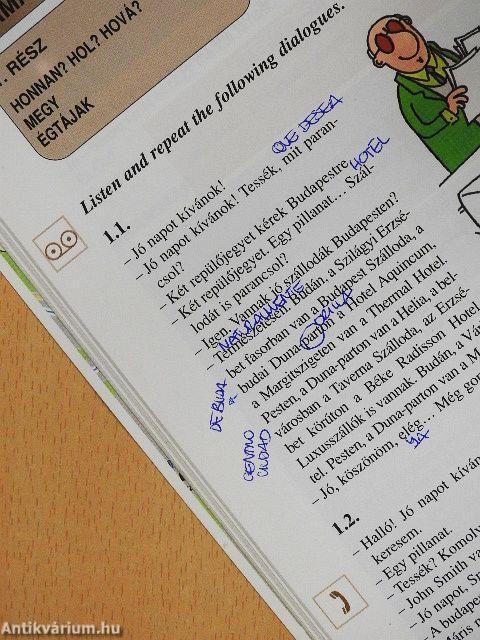 . RÉSZ
HONNAN? HOL? HOVÁ?
MEGY
ÉGTÁJAK
Listen and repeat the following dialogues.
1.1.
– Jó napot kívánok!
QUE DESEA
– Jó napot kívánok! Tessék, mit paran-
csol?
– Két repülőjegyet kérek Budapestre
HOTEL
– Két repülőjegyet. Egy pillanat… Szál-
lodát is parancsol?
– Igen. Vannak jó szállodák Budapesten?
NATURALMENTE
– Természetesen. Budán, a Szilágyi Erzsé-
bet fasorban van a Budapest Szálloda, a
ORILLA
budai Duna-parton a Hotel Aquincum,
a Margitszigeten van a Thermal Hotel.
DE BUDA
Pesten, a Duna-parton van a Helia, a bel-
városban a Taverna Szálloda, az Erzsé-
CENTRO
CIUDAD
bet körúton a Béke Radisson Hotel
Luxusszállók is vannak. Budán, a Vá
tel. Pesten, a Duna-parton van a M
– Jó, köszönöm, elég… Még gon
YA
1.2.
– Halló! Jó napot kíván
keresem.
– Egy pillanat.
– Tessék? Komoly
– John Smith va
– Jó napot, Sm
A budapest
Antikvárium.hu